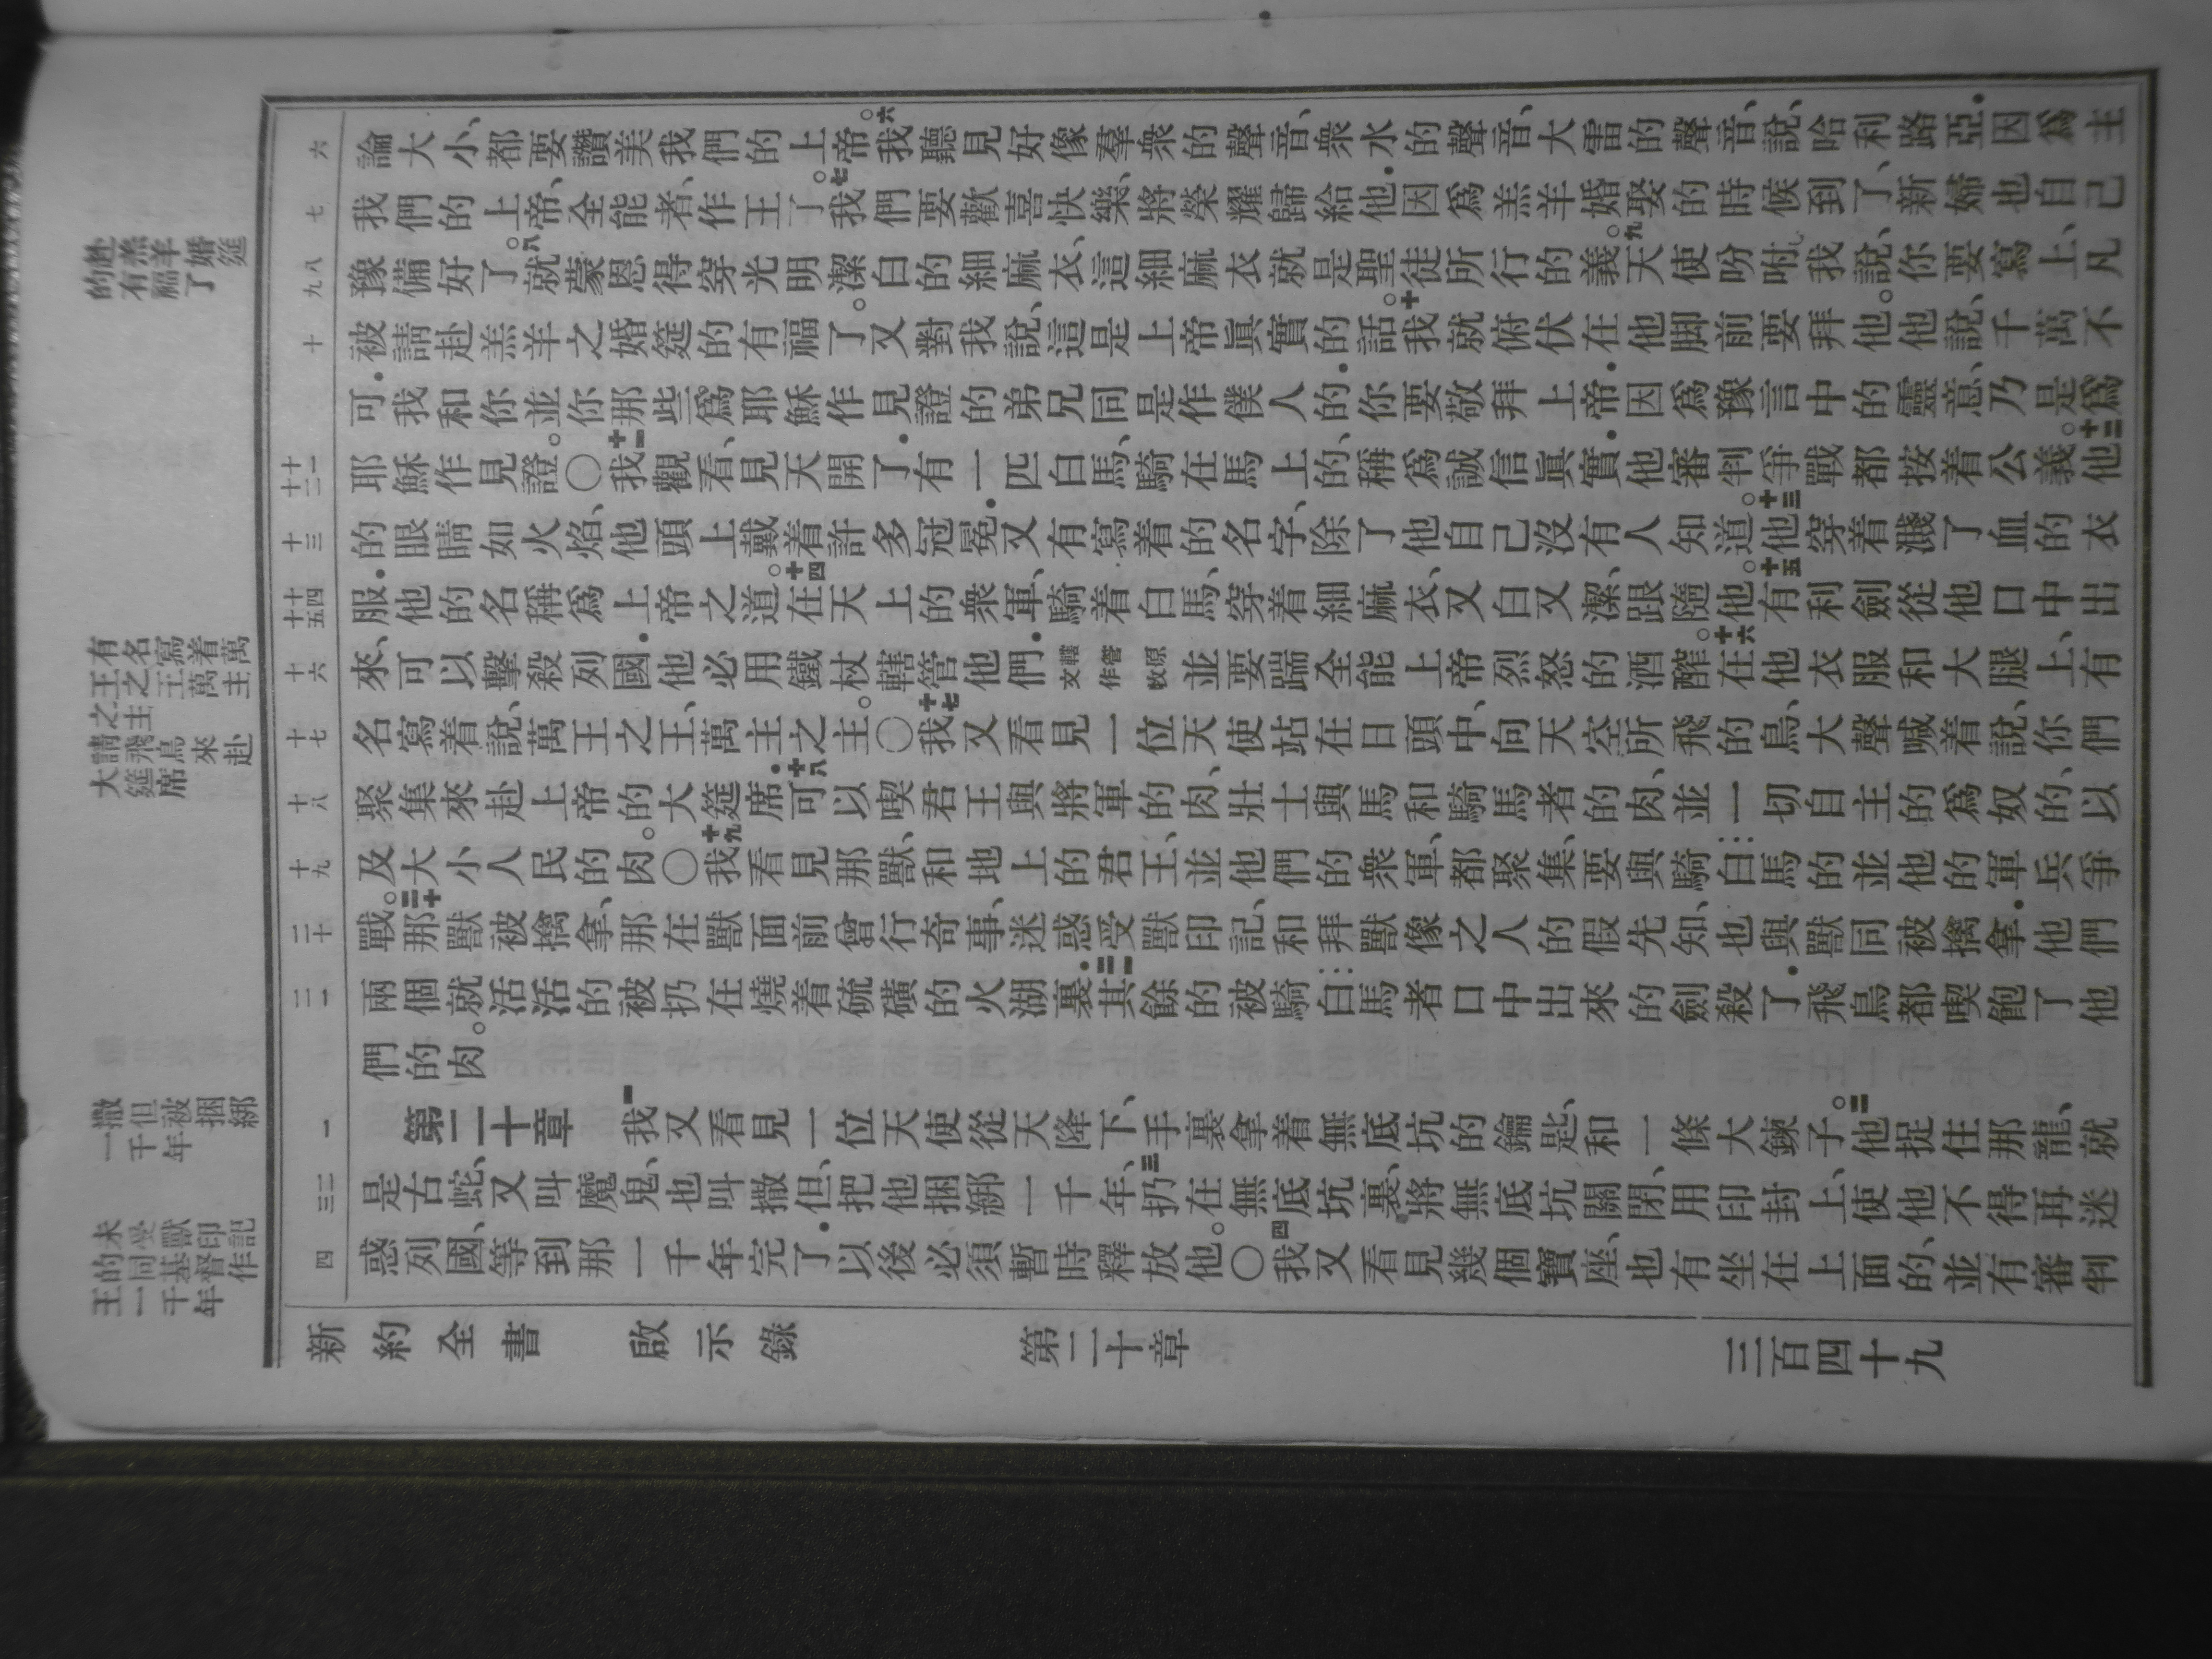 論大小、都要讚美我們的上帝。六我聽見好像羣衆的聲音、衆水的聲音、大雷的聲音、說、哈利路亞．因爲主
我們的上帝、全能者、作王了。七我們要歡喜快樂、將榮耀歸給他．因爲羔羊婚娶的時候到了、新婦也自己
豫備好了。八就蒙恩得穿光明潔白的細麻衣、這細麻衣就是聖徒所行的義。九天使吩咐我說、你要寫上、凡
被請赴羔羊之婚筵的有福了。又對我說、這是上帝眞實的話。十我就俯伏在他脚前要拜他。他說、千萬不
可．我和你並你那些爲耶穌作見證的弟兄同是作僕人的．你要敬拜上帝．因爲豫言中的靈意、乃是爲
耶穌作見證。〇十一我觀看、見天開了．有一匹白馬、騎在馬上的、稱爲誠信眞實．他審判爭戰都按着公義。十二他
的眼睛如火焰、他頭上戴着許多冠冕．又有寫着的名字、除了他自己沒有人知道。十三他穿着濺了血的衣
服．他的名稱爲上帝之道。十四在天上的衆軍、騎着白馬、穿着細麻衣、又白又潔、跟隨他。十五有利劍從他口中出
來、可以擊殺列國．他必用鐵杖轄管他們．轄管原文作牧並要踹全能上帝烈怒的酒醡。十六在他衣服和大腿上、有
名寫着說、萬王之王、萬主之主。〇十七我又看見一位天使站在日頭中、向天空所飛的鳥、大聲喊着說、你們
聚集來赴上帝的大筵席．十八可以喫君王與將軍的肉、壯士與馬和騎馬者的肉、並一切自主的爲奴的、以
及大小人民的肉。〇十九我看見那獸、和地上的君王、並他們的衆軍、都聚集、要與騎白馬的並他的軍兵爭
戰。二十那獸被擒拿、那在獸面前曾行奇事、迷惑受獸印記、和拜獸像之人的假先知、也與獸同被擒拿．他們
兩個就活活的被扔在燒着硫磺的火湖裏．二一其餘的被騎白馬者口中出來的劍殺了．飛鳥都喫飽了他
們的肉。
第二十章　一我又看見一位天使從天降下、手裏拿着無底坑的鑰匙、和一條大鍊子。二他捉住那龍、就
是古蛇、又叫魔鬼、也叫撒但、把他捆綁一千年、三扔在無底坑裏、將無底坑關閉、用印封上、使他不得再迷
惑列國、等到那一千年完了．以後必須暫時釋放他。〇四我又看見幾個寶座、也有坐在上面的、並有審判
新約全書　啟示錄　第二十章　三百四十九
六
七
八
九
十
十一
十二
十三
十四
十五
十六
十七
十八
十九
二十
二一
一
二
三
四
赴羔羊婚筵
的有福了
有名寫着萬
王之王萬主
之主
請飛鳥來赴
大筵席
撒但被捆綁
一千年
未受獸印記
的同基督作
王一千年